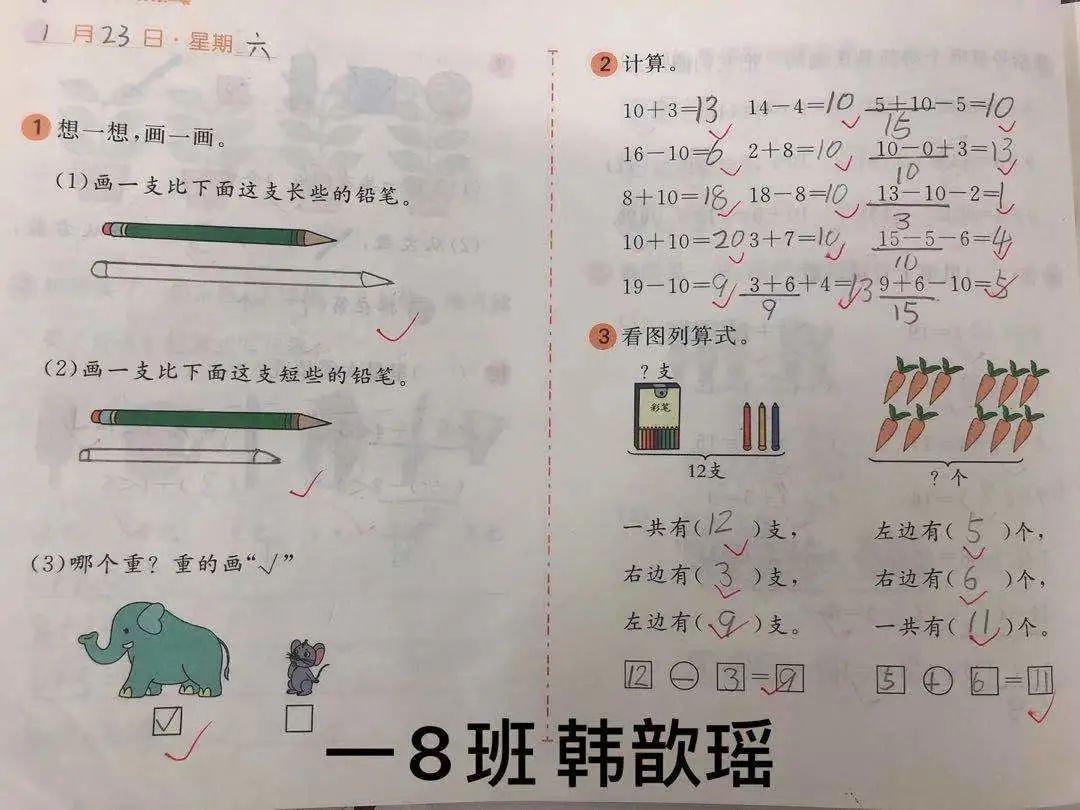 1月23日·星期六
1 想一想,画一画。
(1)画一支比下面这支长些的铅笔。
(2)画一支比下面这支短些的铅笔。
(3)哪个重?重的画“√”
2 计算。
10+3=13 14-4=10 5+10-5=10
15
16-10=6 2+8=10 10-0+3=13
10
8+10=18 18-8=10 13-10-2=1
3
10+10=20 3+7=10 15-5-6=4
10
19-10=9 3+6+4=13 9+6-10=5
9 15
3 看图列算式。
?支
彩笔
12支 ?个
一共有(12)支, 左边有(5)个,
右边有(3)支, 右边有(6)个,
左边有(9)支。 一共有(11)个。
12-3=9 5+6=11
一8班 韩歆瑶